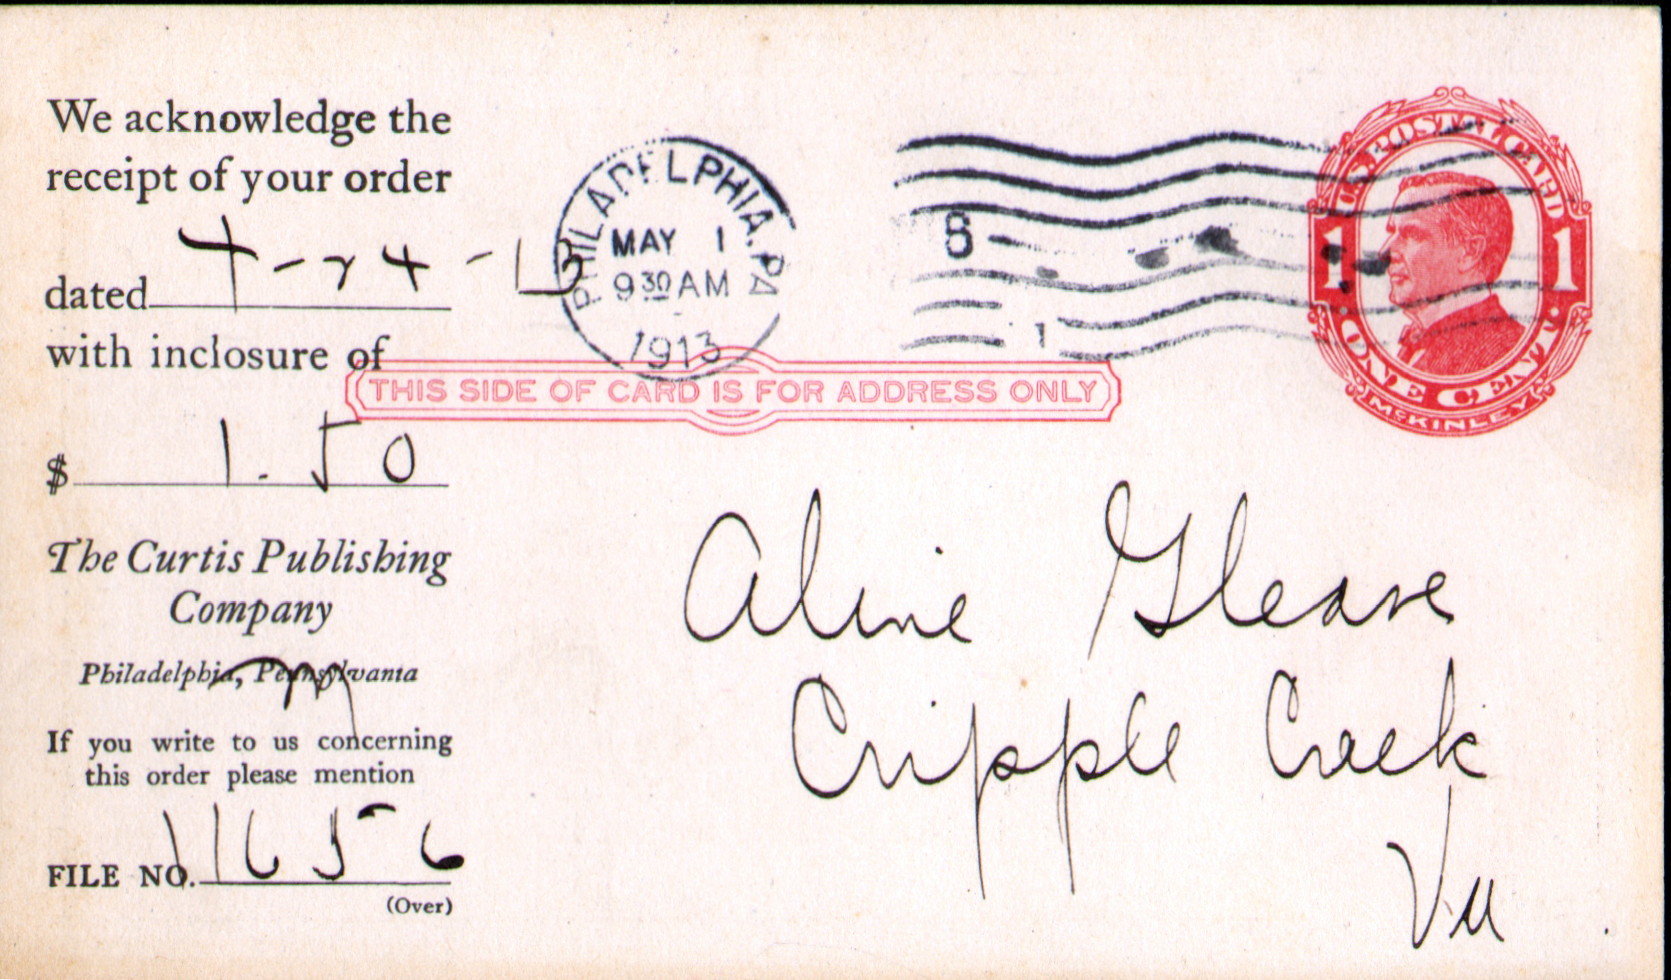 We acknowledge the
receipt of your order
dated 4-24-13
with inclosure of
$ 1.50
The Curtis Publishing
Company
Philadelphia, Pennsylvania
If you write to us concerning
this order please mention
FILE NO. 11656
(Over)
PHILADELPHIA, PA
MAY 1
930 AM
1913
THIS SIDE OF CARD IS FOR ADDRESS ONLY
U.S. POSTAL CARD
1 1
ONE CENT
McKINLEY
Aline Gleave
Cripple Creek
Va